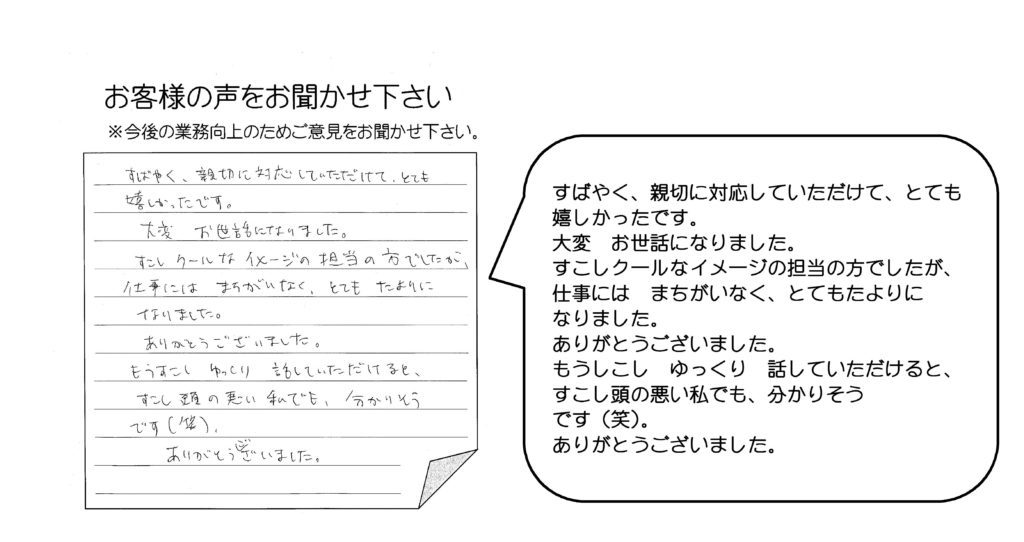 お客様の声をお聞かせ下さい
※今後の業務向上のためご意見をお聞かせ下さい。
すばやく、親切に対応していただけて、とても
嬉しかったです。
大変　お世話になりました。
すこしクールなイメージの担当の方でしたが、
仕事には　まちがいなく、とても　たよりに
なりました。
ありがとうございました。
もうすこし　ゆっくり　話していただけると、
すこし頭の悪い私でも、分かりそう
です(笑)。
ありがとうございました。
すばやく、親切に対応していただけて、とても
嬉しかったです。
大変　お世話になりました。
すこしクールなイメージの担当の方でしたが、
仕事には　まちがいなく、とてもたよりに
なりました。
ありがとうございました。
もうしこし　ゆっくり　話していただけると、
すこし頭の悪い私でも、分かりそう
です（笑）。
ありがとうございました。